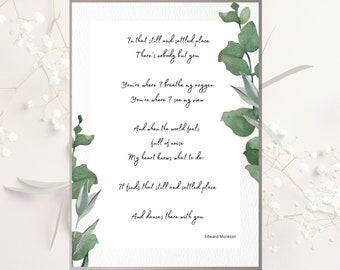 In that still and settled place
There's nobody but you
You're where I breathe my oxygen
You're where I see my view
And when the world feels
full of noise
My heart knows what to do
It finds that still and settled place
And dances there with you
Edward Monkton